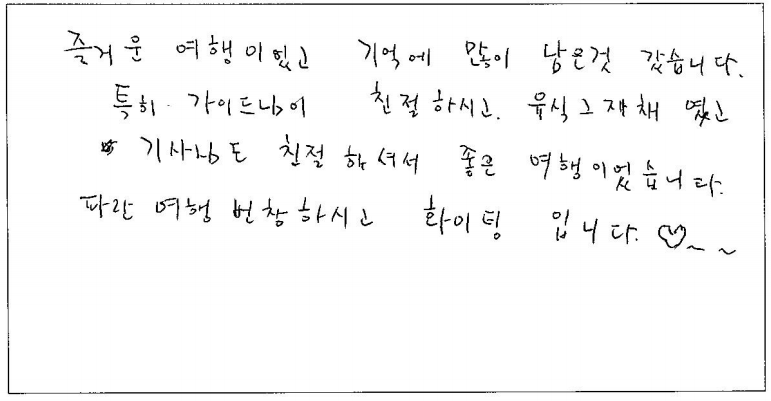 즐거운 여행이였고 기억에 많이 남은것 같습니다.
특히 가이드님이 친절하시고. 유식 그자채 였고
기사님도 친절하셔서 좋은 여행이었습니다.
파란 여행 번창하시고 화이팅 입니다. ♡~ ~